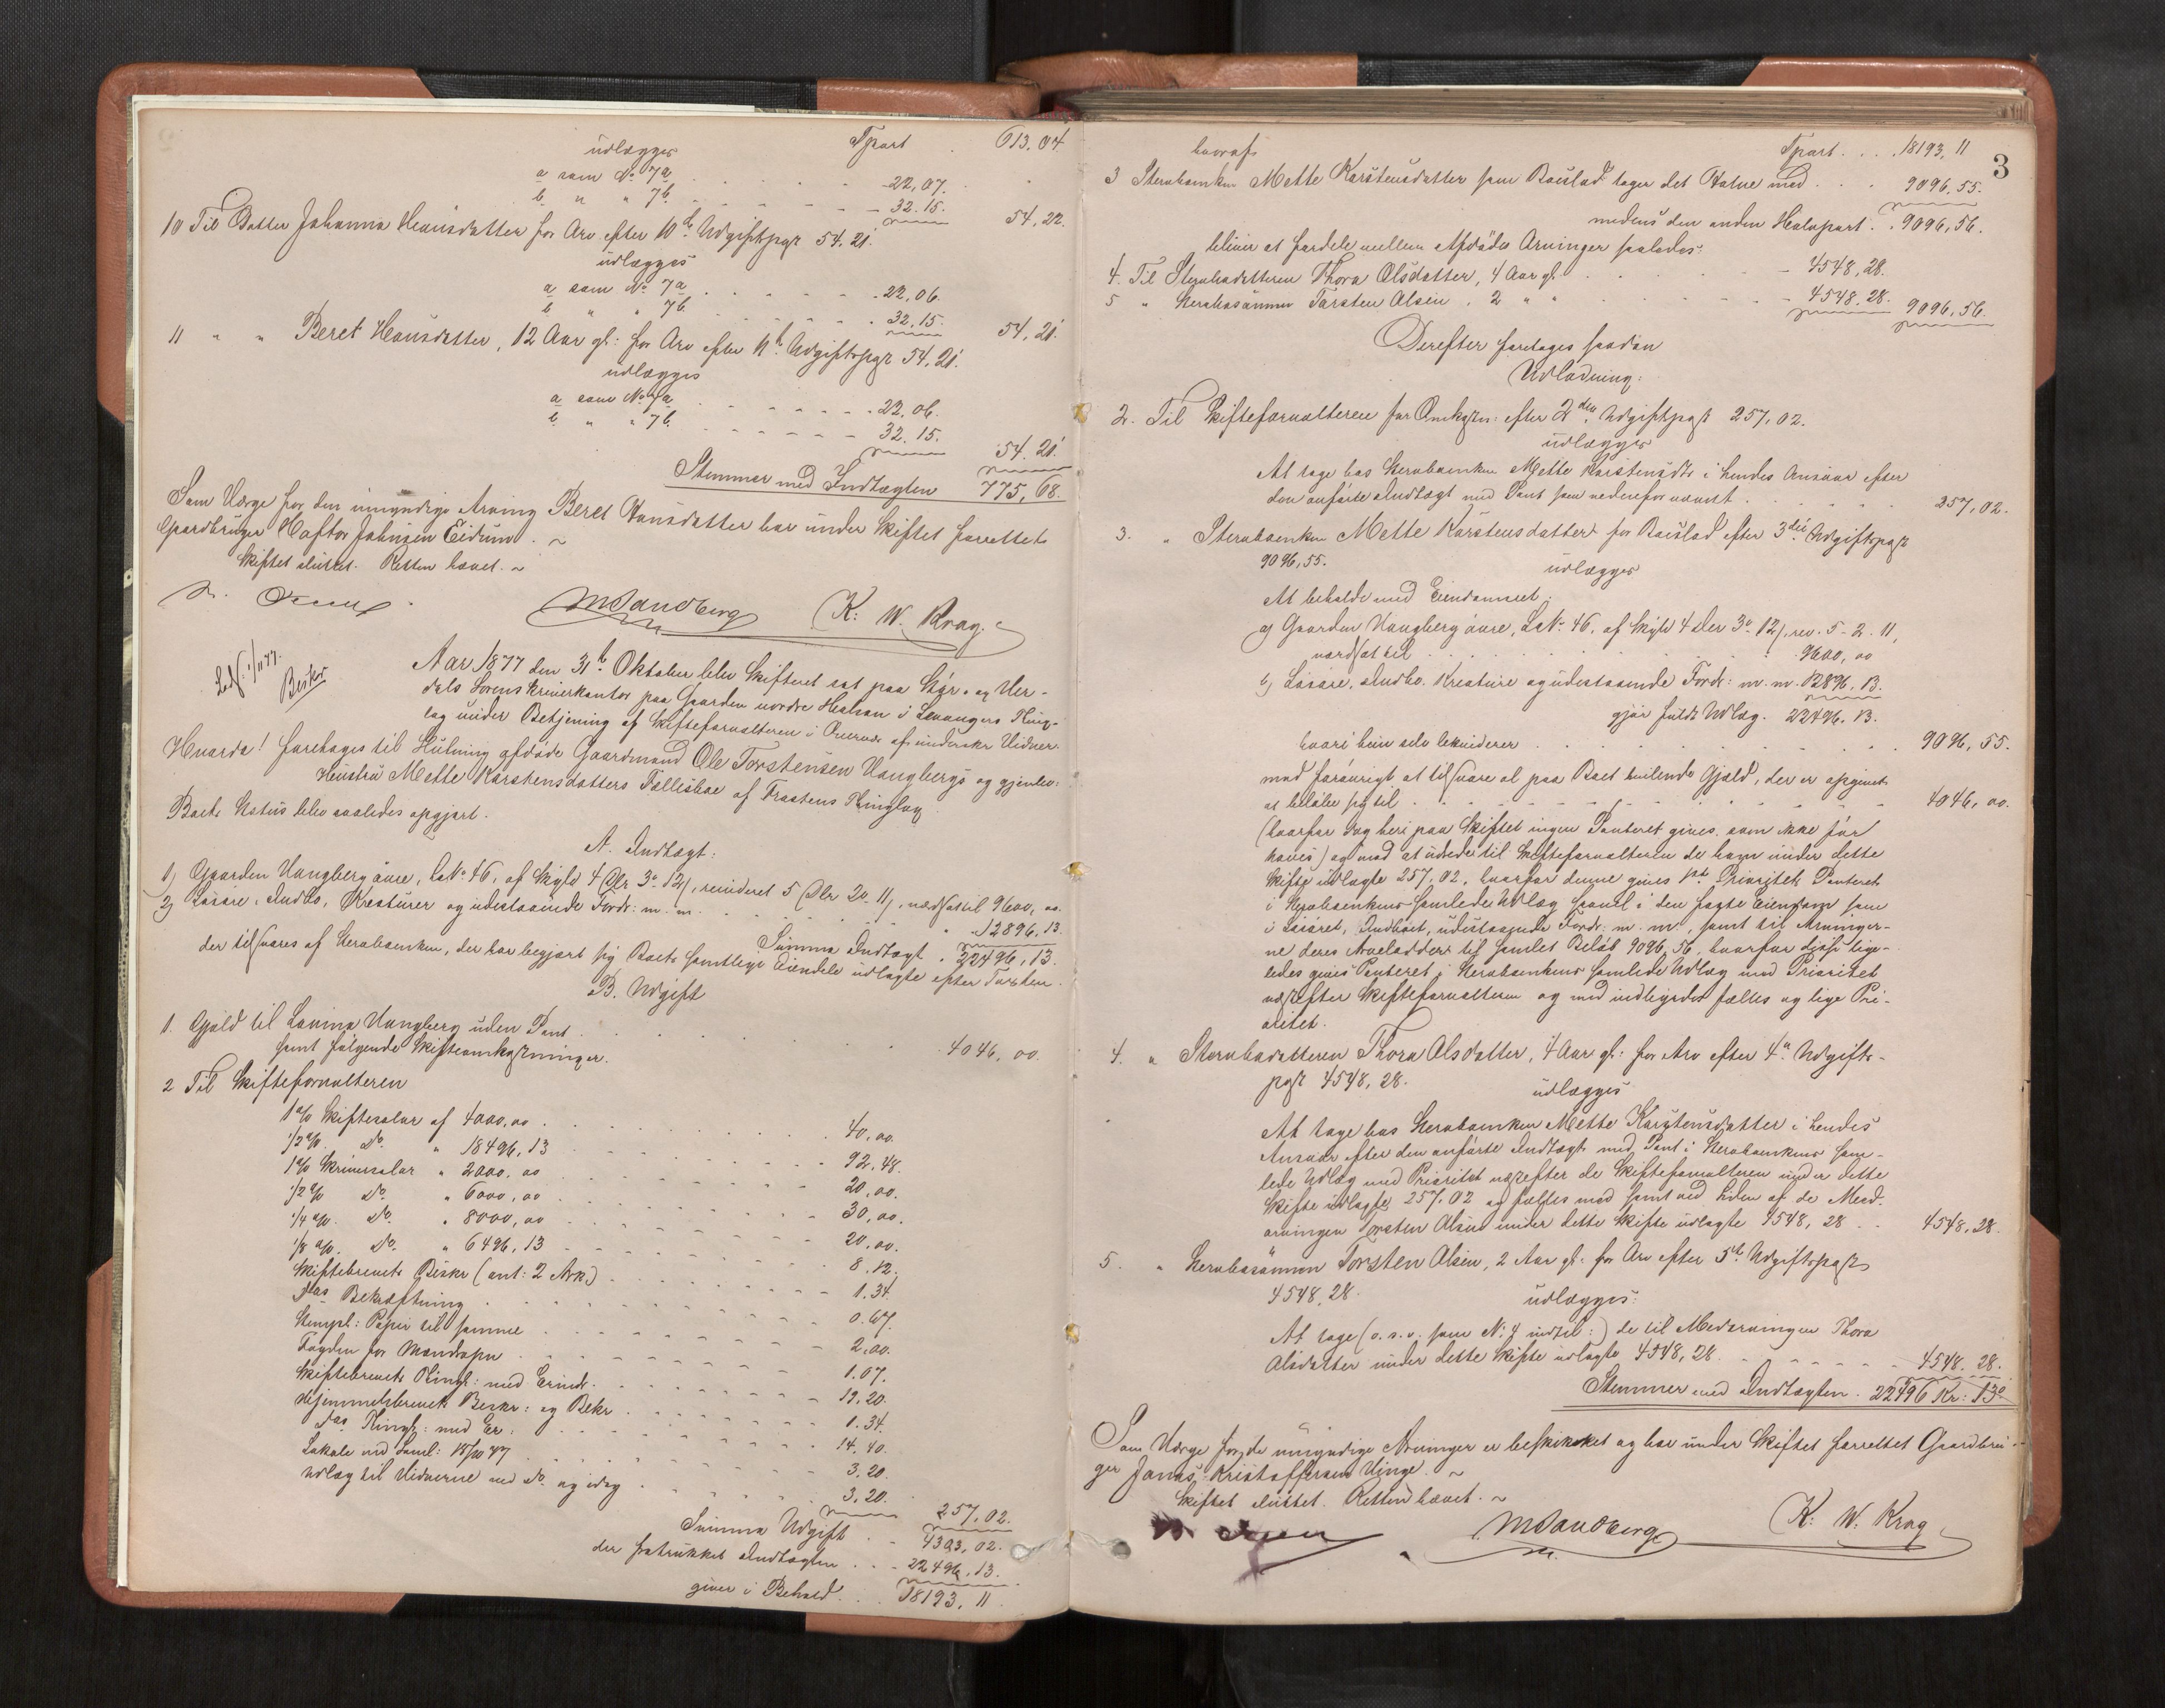 udlægges Tpart . 613.04
a som No 7a . . . . . 22,07.
b " " 7b. . . . . . 32.15. 54,22.
10 Til Datter Johanna Hansdatter for Arv efter 10de Udgiftspgst 54,21.
udlægges
a som No 7a . . . . . 22,06.
b " " 7b . . . . . 32,15. 54,21.
11 " " Beret Hansdatter, 12 Aar gl: for Arv efter 11te Udgiftspgst 54,21.
udlægges
a som No 7a . . . . . 22,06.
b " " 7b. . . . . . 32.15. 54.21.
Stemmer med Indtægten 775,68.
Som Værge for den umyndige Arving Beret Hansdatter har under Skiftet forrettet
Gaardbruger Haftor Johnsen Eidum.
Skiftet sluttet. Retten hævet.
MSandberg K. W. Krag.
1/11 77.
Beskr
Aar 1877 den 31te Oktober blev Skifteret sat paa Stør- og Vær-
dals Sorenskriverkontor paa Gaarden nordre Halsan i Levangers Thing-
lag under Betjening af Skifteforvalteren i Overvær af underskr Vidner.
Hvorda! foretoges til Slutning afdøde Gaardmand Ole Torstensen Vangbergs og gjenlev:
Hustru Mette Karstensdatters Fællisboe af Frostens Thinglag
Boets Status blev saaledes opgjort.
A. Indtægt.
1) Gaarden Vangberg øvre, LNo 46, af Skyld 4 Dlr 3 o. 12 s, revideret 5 Dlr 2 o. 11 s, værdsat til 9600,00.
2) Løsøre, Indbo, Kreaturer og udestaaende Fordr: m. m. . . . . 12896,13.
Summa Indtægt . 22496,13.
der tilsvares af Stervboenken, der har begjært sig Boets samtlige Eiendele udlagte efter Taxten.
B. Udgift
1. Gjæld til Lovina Vangberg uden Pant . . . . . 4046,00.
samt følgende Skifteomkostninger.
2 Til Skifteforvalteren
1 % Skiftesalær af 4000,00 . . . . . 40,00.
1/2 % Do. " 18496,13 . . . . . 92,48.
1 % Skriversalær " 2000,00 . . . . . 20,00.
1/2 % Do " 6000,00 . . . . . 30,00.
1/4 %. Do. " 8000,00 . . . . . 20,00.
1/8 %. Do. " 6496,13 . . . . . 8.12.
Skiftebrevets Beskr (ant: 2 Ark) . . . . . 1.34.
Ds Bekræftning . . . . . 0.67.
Stempl: Papir til samme . . . . . 2,00.
Fogden for . . . . . 1.07.
Skiftebrevets Thingl: med Erindr. . . . . . 19.20.
Hjemmelsbrevets Beskr: og Bekr . . . . . 1.34.
Ds Thingl: med Er: . . . . . 14.40.
Lokale ved Saml: 15/10 77 . . . . . 3.20.
Udlæg til Vidnerne ved Do. og idag . . . . . 3.20. 257,02.
Summa Udgift . . 4303,02.
der fratrukket Indtægten . . . 22496,13.
giver i Behold . . . 18193,11.
3
hvoraf Tpart . . . 18193,11
3 Stervboenken Mette Karstensdatter som Boslod tager det Halve med . . . 9096,55.
medens den anden Halvpart . . 9096,56.
bliver at fordele mellem Afdødes Arvinger saaledes:
4. Til Stervbodatteren Thora Olsdatter, 4 Aar gl. . . . . . 4548,28.
5 " Stervbosønnen Torsten Olsen, 2 " " . . . . . 4548.28. 9096,56.
Derefter foretoges saadan
Udlodning:
2. Til Skifteforvalteren for Omkostn: efter 2den Udgiftspost 257,02.
udlægges
At tage hos Stervboenken Mette Karstensdtr i hendes Ansvar efter
den anførte Indtægt med Pant som nedenfor nævnt . . . . . 257,02.
3. " Stervboenken Mette Karstensdatter for Boslod efter 3die Udgiftspost
9096,55. udlægges
At beholde med Eiendomsret:
a) Gaarden Vangberg øvre, LNo 46. af Skyld 4 Dlr 3 o. 12 s, rev. 5 - 2. 11,
værdsat til . . . . . 9600,00
b) Løsøre, Indbo, Kreature og udestaaende Fordr: m. m. 12896.13.
gjør fuldt Udlæg. 22496.13.
hvori hun selv likviderer . . . . . 9096,55.
mod forøvrigt at tilsvare al paa Boet hvilende Gjæld, der er opgivet
at beløbe sig til . . . . . 4046,00.
(hvorfor dog her paa Skiftet ingen Panteret gives, som ikke før
haves) og mod at udrede til Skifteforvalteren de ham under dette
Skifte udlagte 257,02, hvorfor denne gives 1ste Prioritets Panteret
i Stervboenkens samlede Udlæg saavel i den faste Eiendom som
i Løsøret, Indboet, udestaaende Fordr: m. m., samt til Arvinger-
ne deres Arvelodder til samlet Beløb 9096,56, hvorfor disse lige-
ledes gives Panteret i Stervboenkens samlede Udlæg med Prioritet
næstefter Skifteforvalteren og med indbyrdes fælles og lige Pri-
oritet.
4. " Stervbodatteren Thora Olsdatter, 4 Aar gl: for Arv efter 4de Udgifts-
post 4548,28. udlægges
At tage hos Stervboenken Mette Karstensdatter i hendes
Ansvar efter den anførte Indtægt med Pant i Stervboenkens sam-
lede Udlæg med Prioritet næstefter de Skifteforvalteren under dette
Skifte udlagte 257,02 og fælles med samt ved Siden af de Med-
arvingen Torsten Olsen under dette Skifte udlagte 4548,28 . . 4548,28.
5. " Stervbosønnen Torsten Olsen, 2 Aar gl: for Arv efter 5te Udgiftspost
4548,28. udlægges:
At tage (o.s.v. som No 4 indtil:) de til Medarvingen Thora
Olsdatter under dette Skifte udlagte 4548,28 . . . . . 4548.28.
Stemmer med Indtægten . 22496 Kr: 13 o
Som Værge for de umyndige Arvinger er beskikket og har under Skiftet forrettet Gaardbru-
ger Jonas Kristoffersen Vinge.
Skiftet sluttet. Retten hævet.
MSandberg K. W. Krag